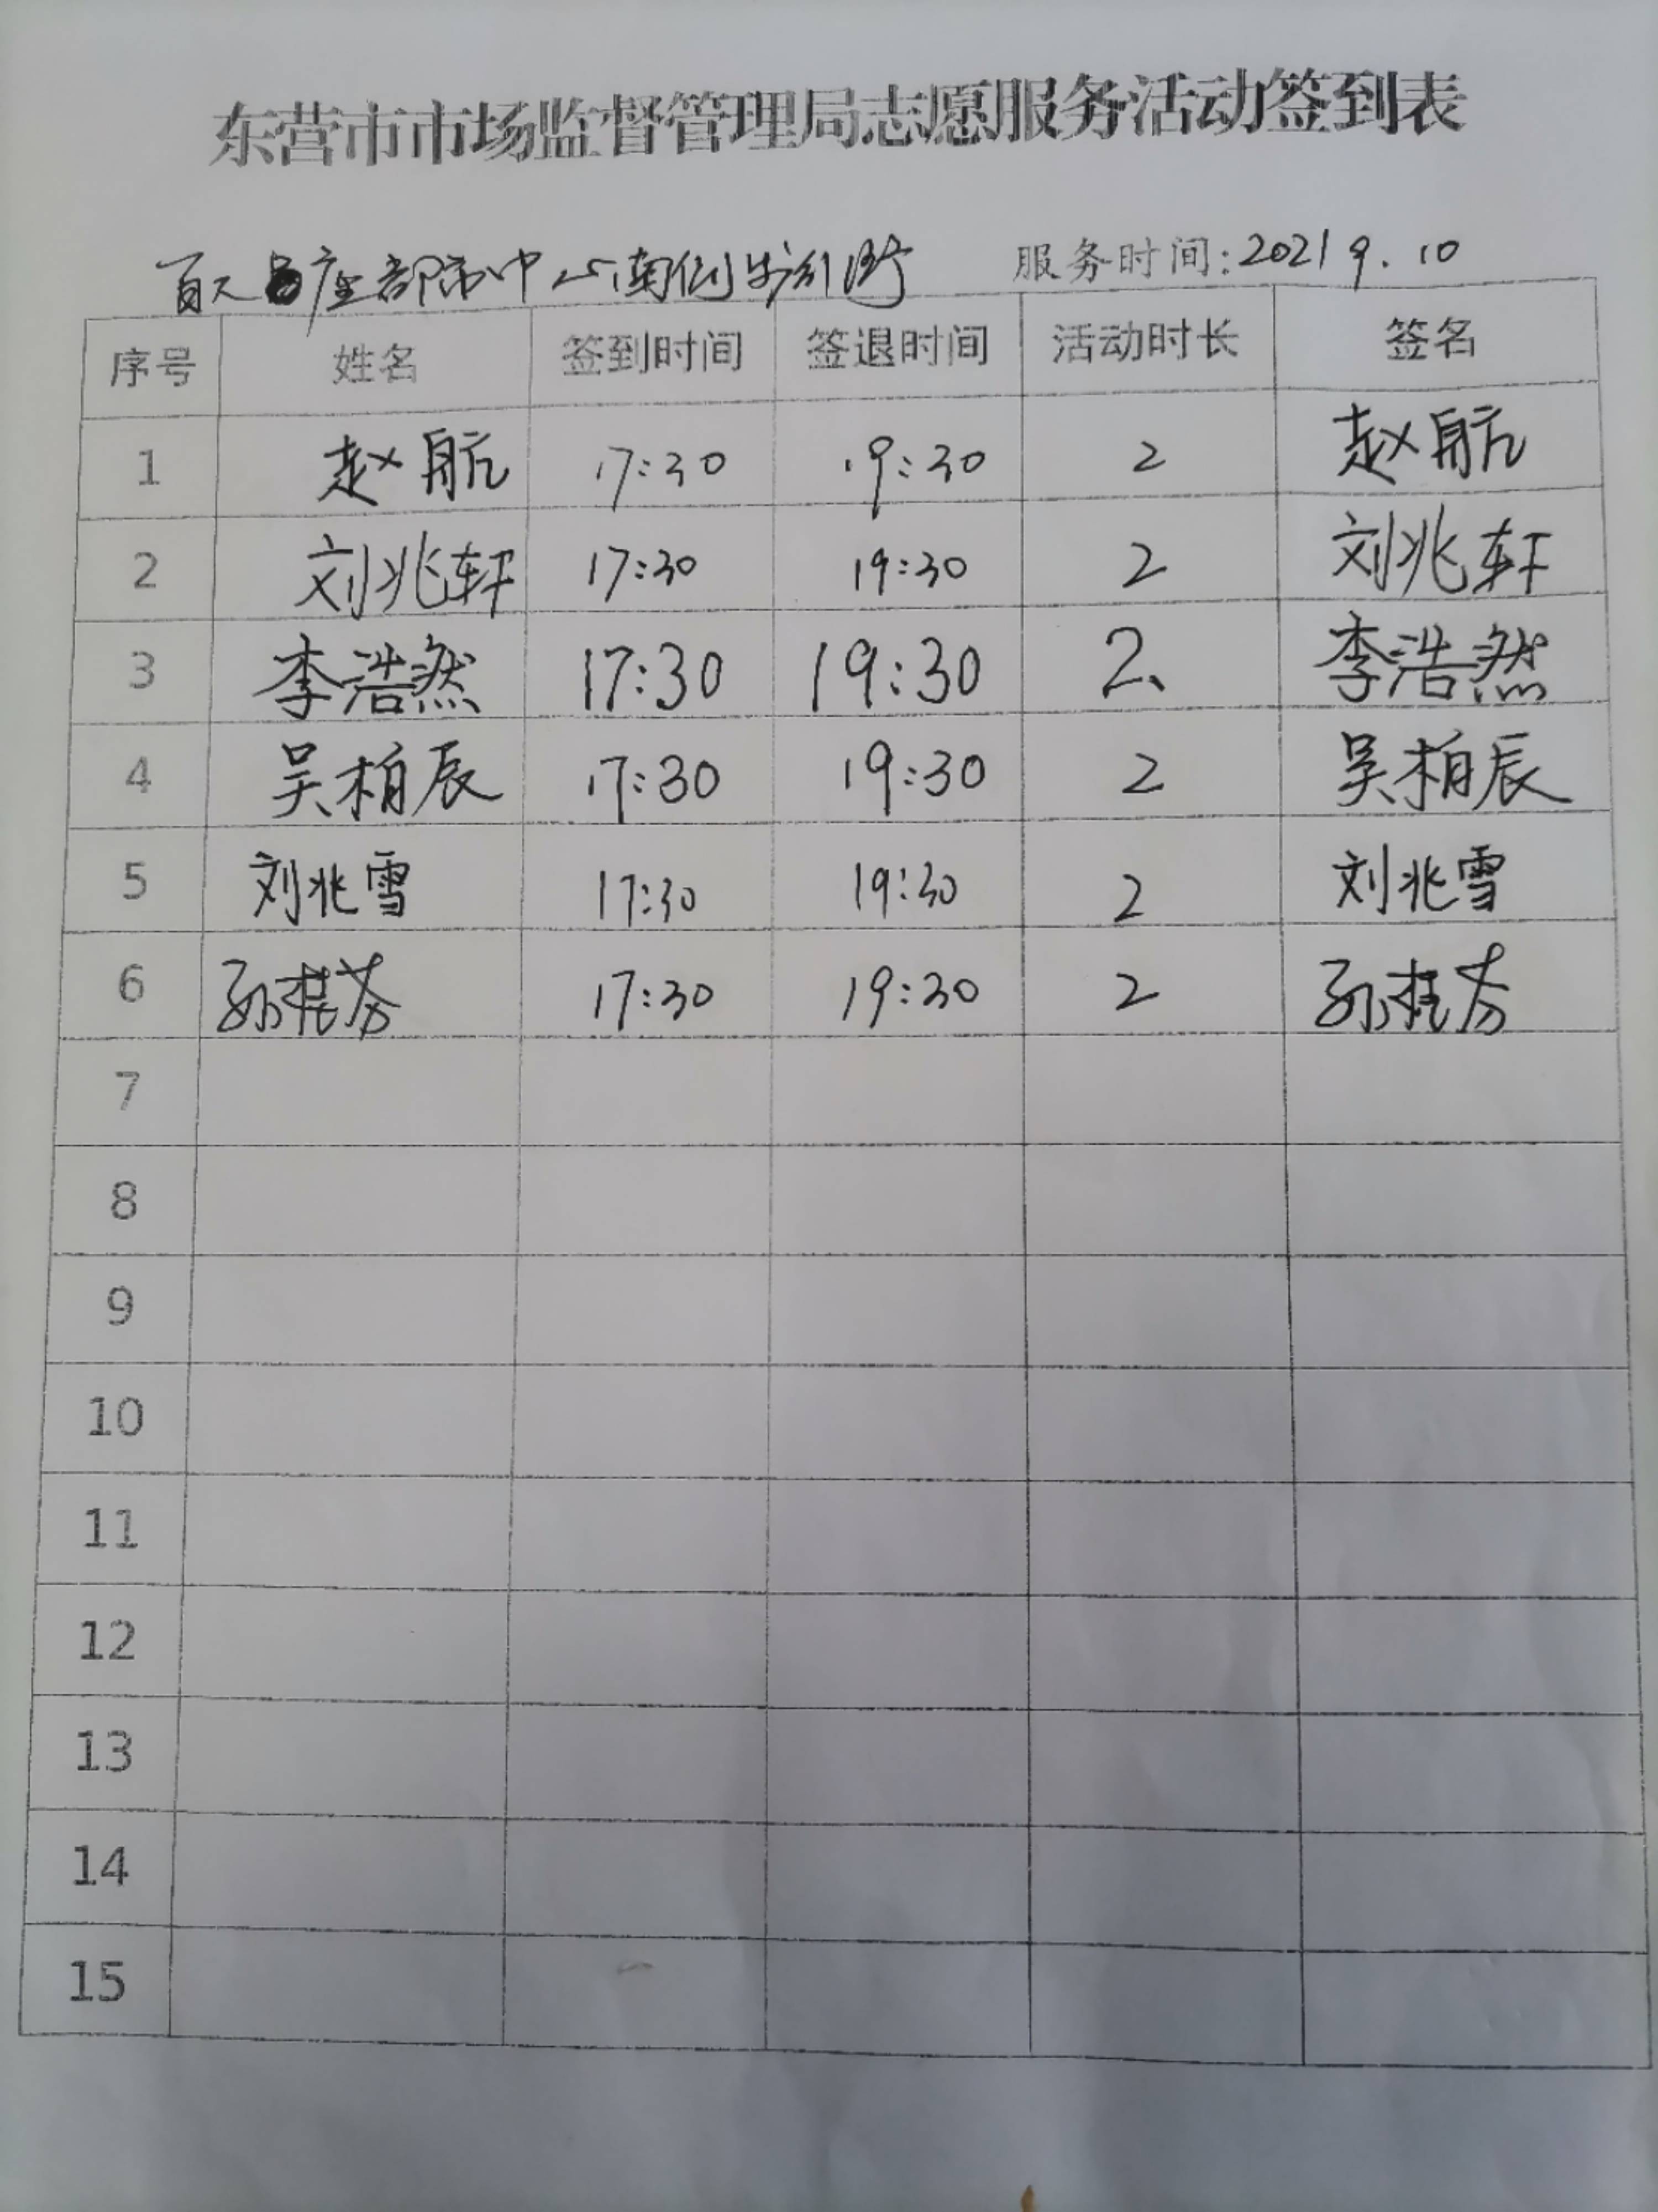 东营市市场监督管理局志愿服务活动签到表
座 市中心南侧 街 服务时间:2021 9.10
序号 姓名 签到时间 签退时间 活动时长 签名
1 赵航 17:30 19:30 2 赵航
2 刘兆轩 17:30 19:30 2 刘兆轩
3 李浩然 17:30 19:30 2、 李浩然
4 吴柏辰 17:30 19:30 2 吴柏辰
5 刘兆雪 17:30 19:30 2 刘兆雪
6 孙桂芬 17:30 19:30 2 孙桂芬
7
8
9
10
11
12
13
14
15